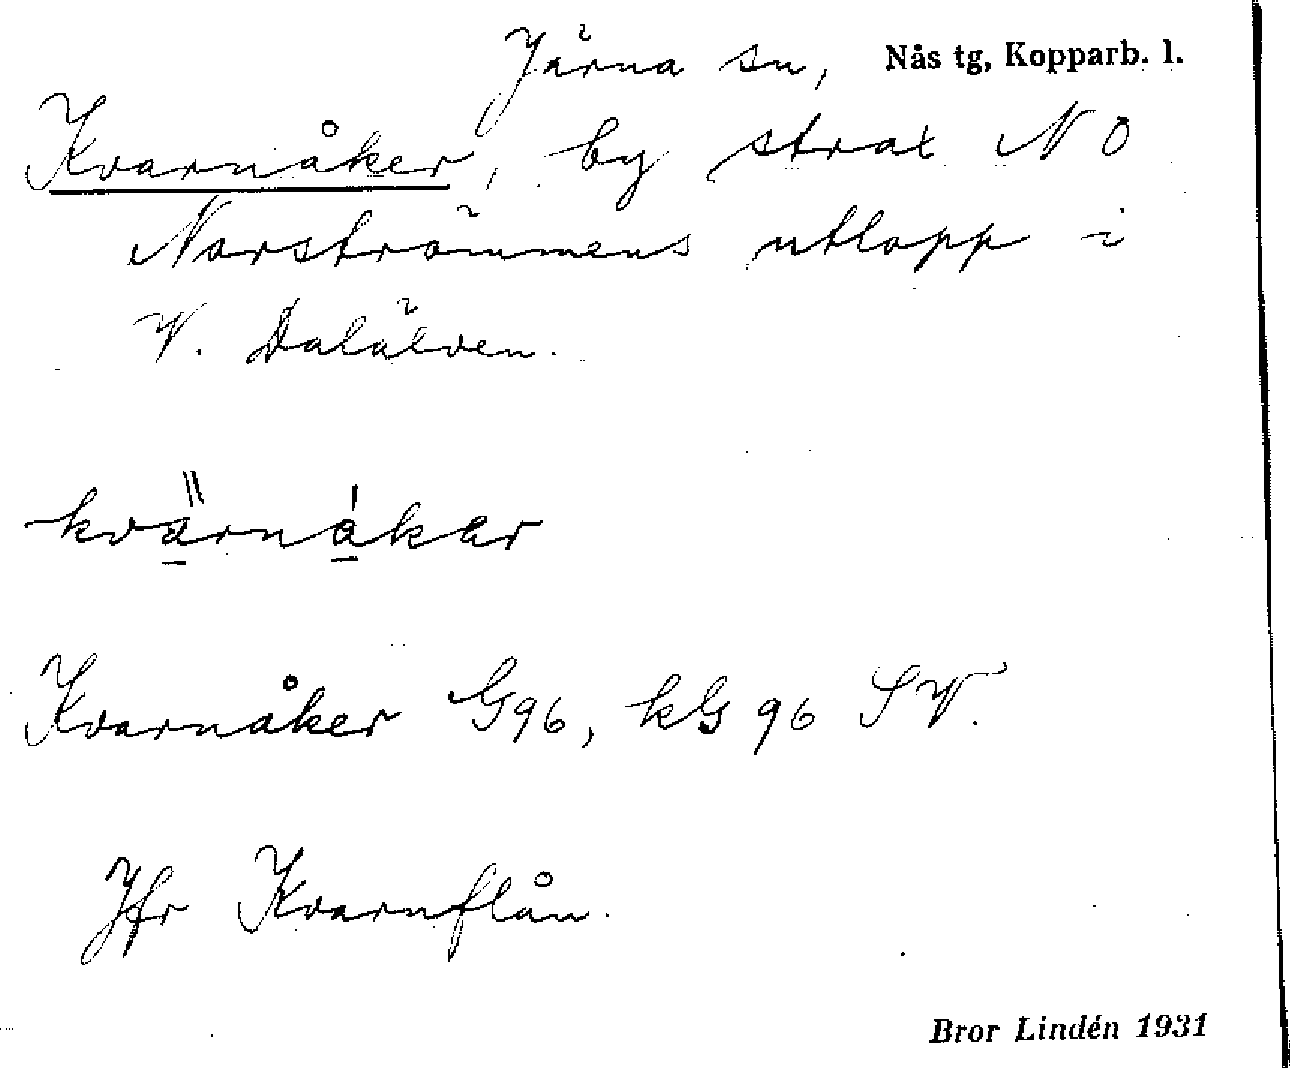 Järna sn, Nås tg, Kopparb. l.
Kvarnåker, by strax NO
Norströmmens utlopp i
V. Dalälven.
kvärnåker
Kvarnåker G96, kG 96 SV.
Jfr Kvarnflån.
Bror Lindén 1931